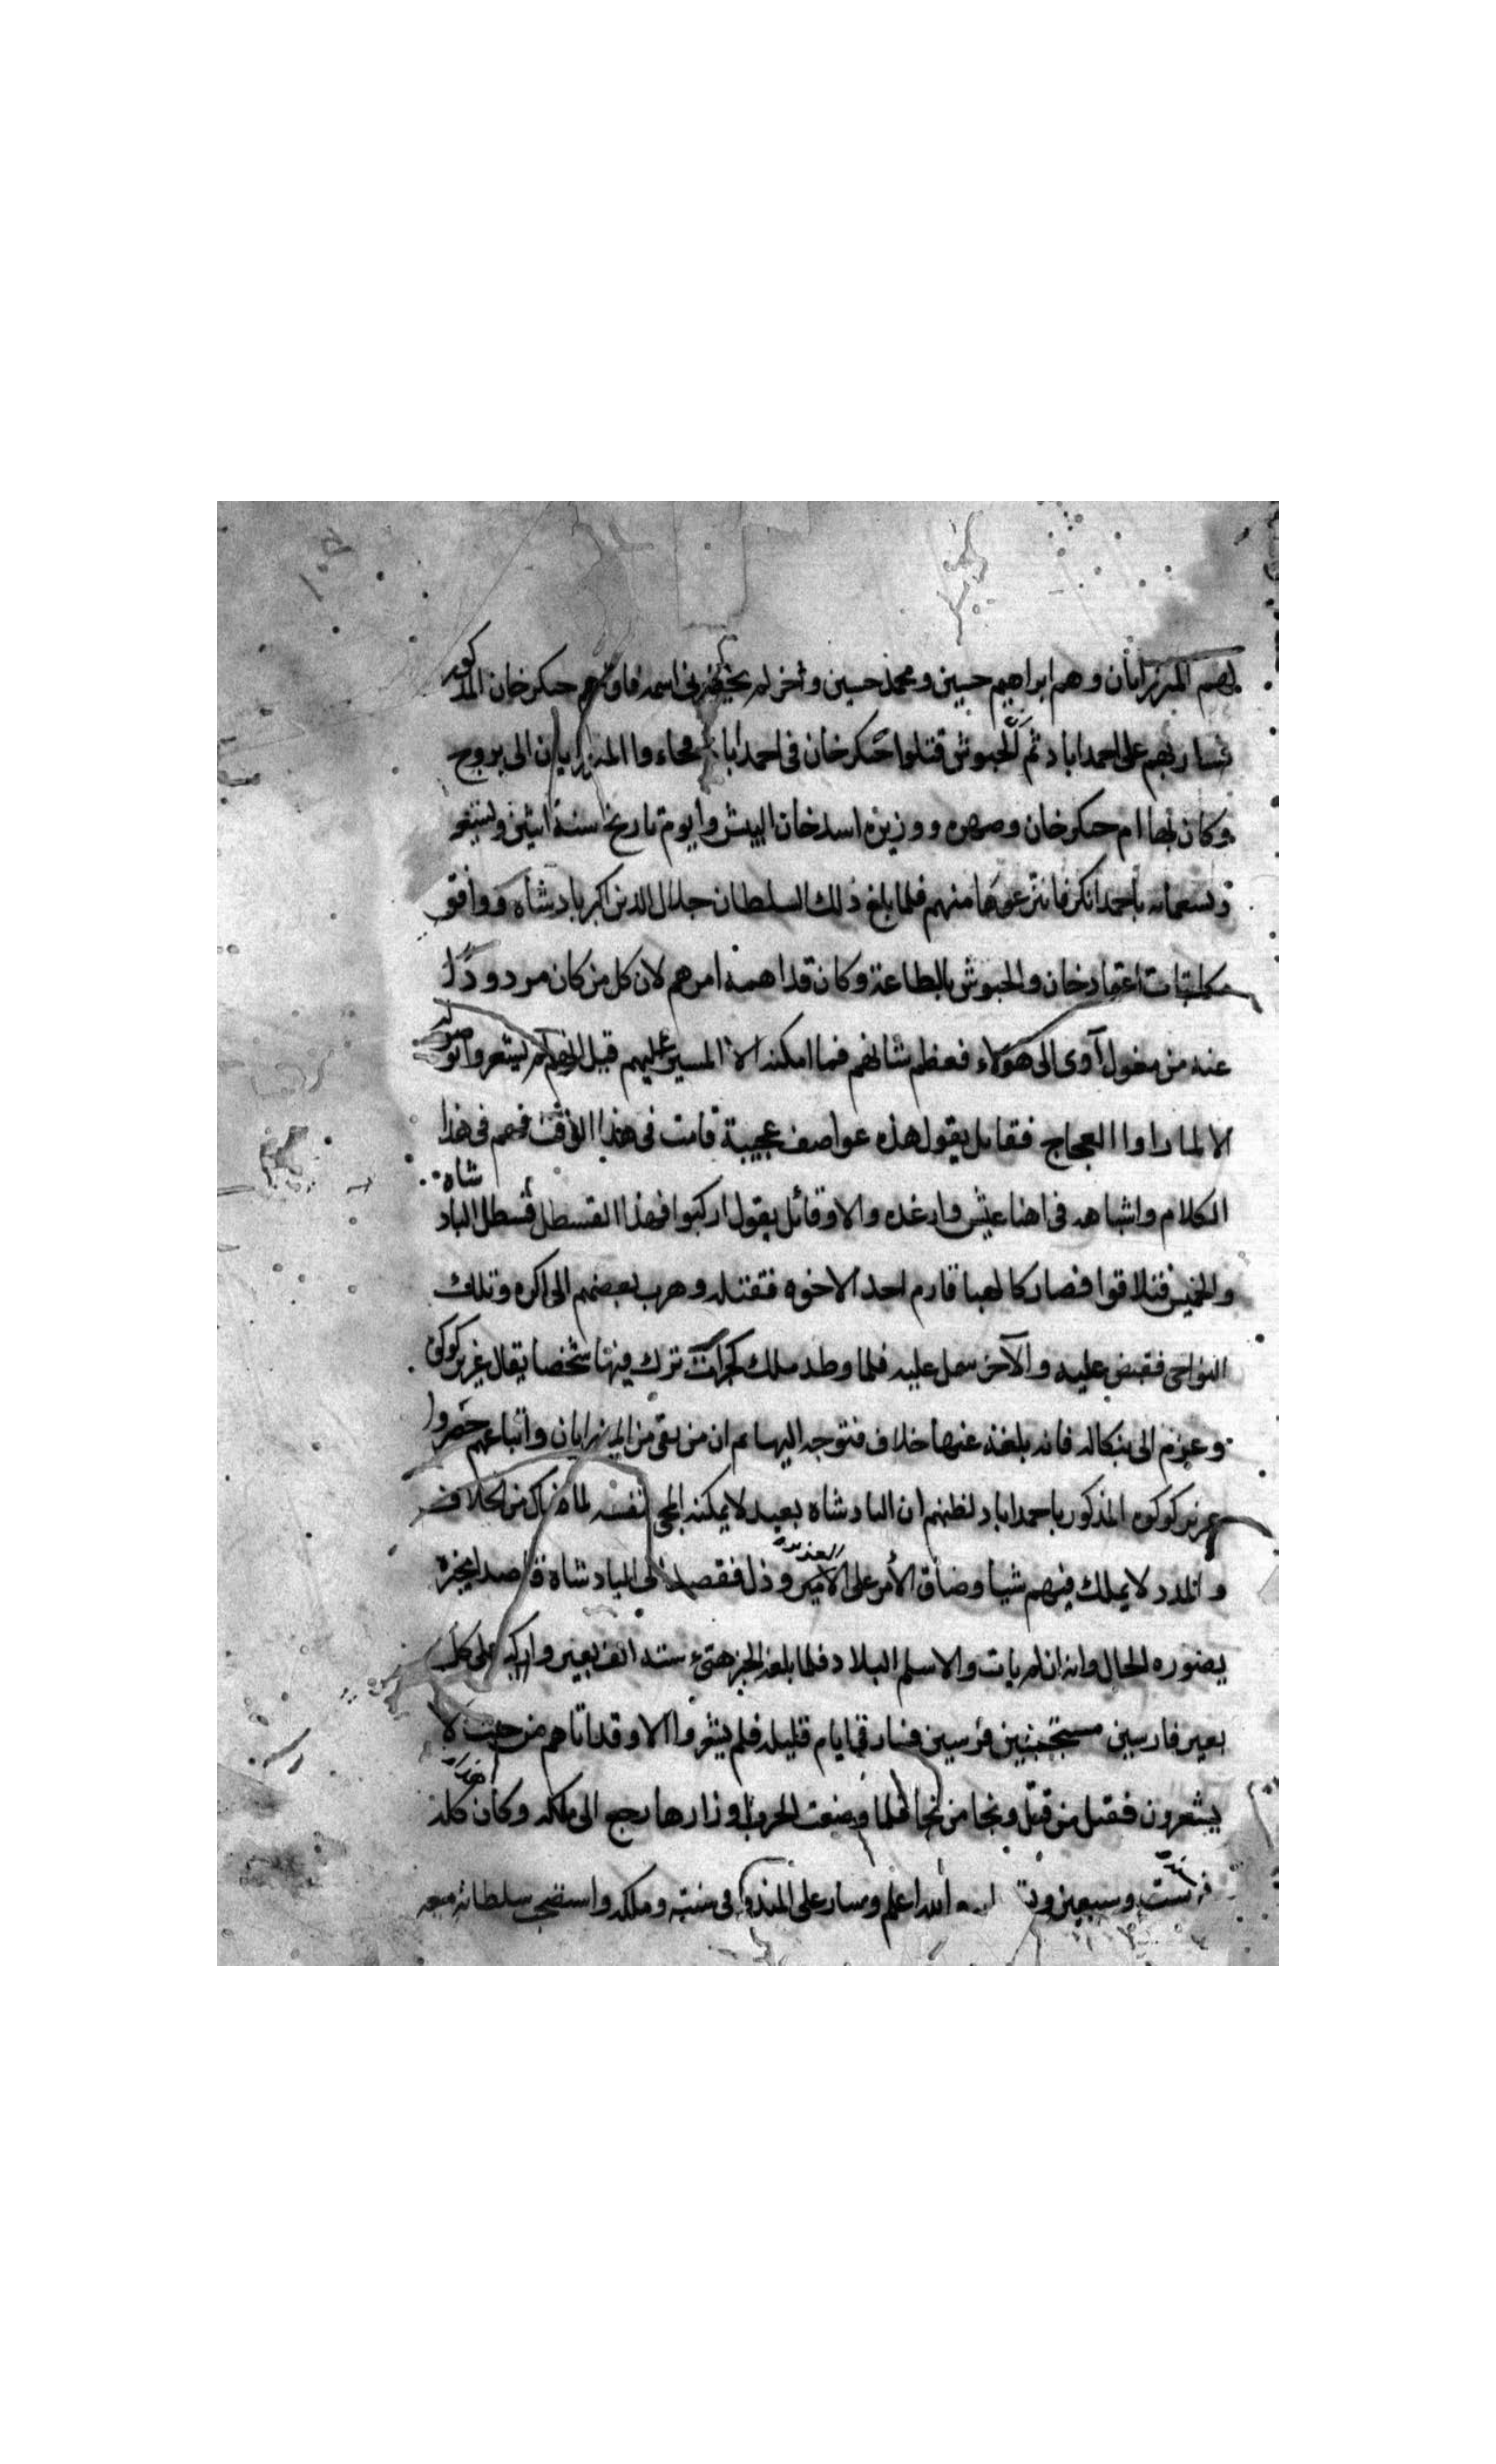 لهم المرزايان وهم ابراهيم حسين ومحمد حسين وآخر لم اسمه جنكر خان المذكور
فسار بهم على احمداباد ثم الحبوش قتلوا جنكر خان في احمداباد المرزايان الى بروج
وكان بها ام جنكر خان وصهره ووزيره اسد خان تاريخ سنة اثنين
وتسعمائه فانتزعوها منهم فلما بلغ ذلك السلطان جلال الدين اكبر بادشاه ووافق
مكاتبات اعتماد خان والحبوش بالطاعة وكان قد اهمه امرهم لان كل من كان مردودا
عنه من مغول آوى الى هؤلاء فعظم شانهم فما امكنه الا المسير عليهم قبل
الا لما راوا العجاج فقائل يقول هذه عواصف عجيبة قامت في هذا الوقت فهم في هذا
الكلام واشباهه في اهنا عيش وارغده والا وقائل يقول اركبوا فهذا القسطل قسطل الباد شاه
والخميس فتلاقوا فصار احد الاخوه فقتله وهرب بعضهم الى اكره وتلك
النواحي فقبض عليه والآخر سمل عليه فلما وطد ملك كجرات ترك فيها شخصا يقال عزيز كوكى
وعزم الى بنكاله فانه بلغه عنها خلاف فتوجه اليها ثم ان من بقى من الميرزايان واتباعهم حضروا
عزيز كوكوه المذكور باحمداباد لظنهم ان البادشاه بعيد لا يمكنه المجي بنفسه لما هناك من الخلاف
والمدد لا يملك فيهم شيا وضاق الأمر على الامير العزيز وذل فقصد الى البادشاه قاصدا يخبره
بصوره الحال وانه ان لم يات والا سلم البلاد فلما بلغه الخبر هيىء ستة الف بعير واركب على كل
بعير فارسين مستجنبين فرسين فسار في ايام قليله فلم يشعروا الا وقد اتاهم من حيث لا
يشعرون فقتل من قتل ونجا من نجا فلما وضعت الحرب اوزارها رجع الى ملكه وكان هذا كله
في سنة ست وسبعين الله اعلم وسار على المندو في سنته وملكه واستصحب سلطانه معه